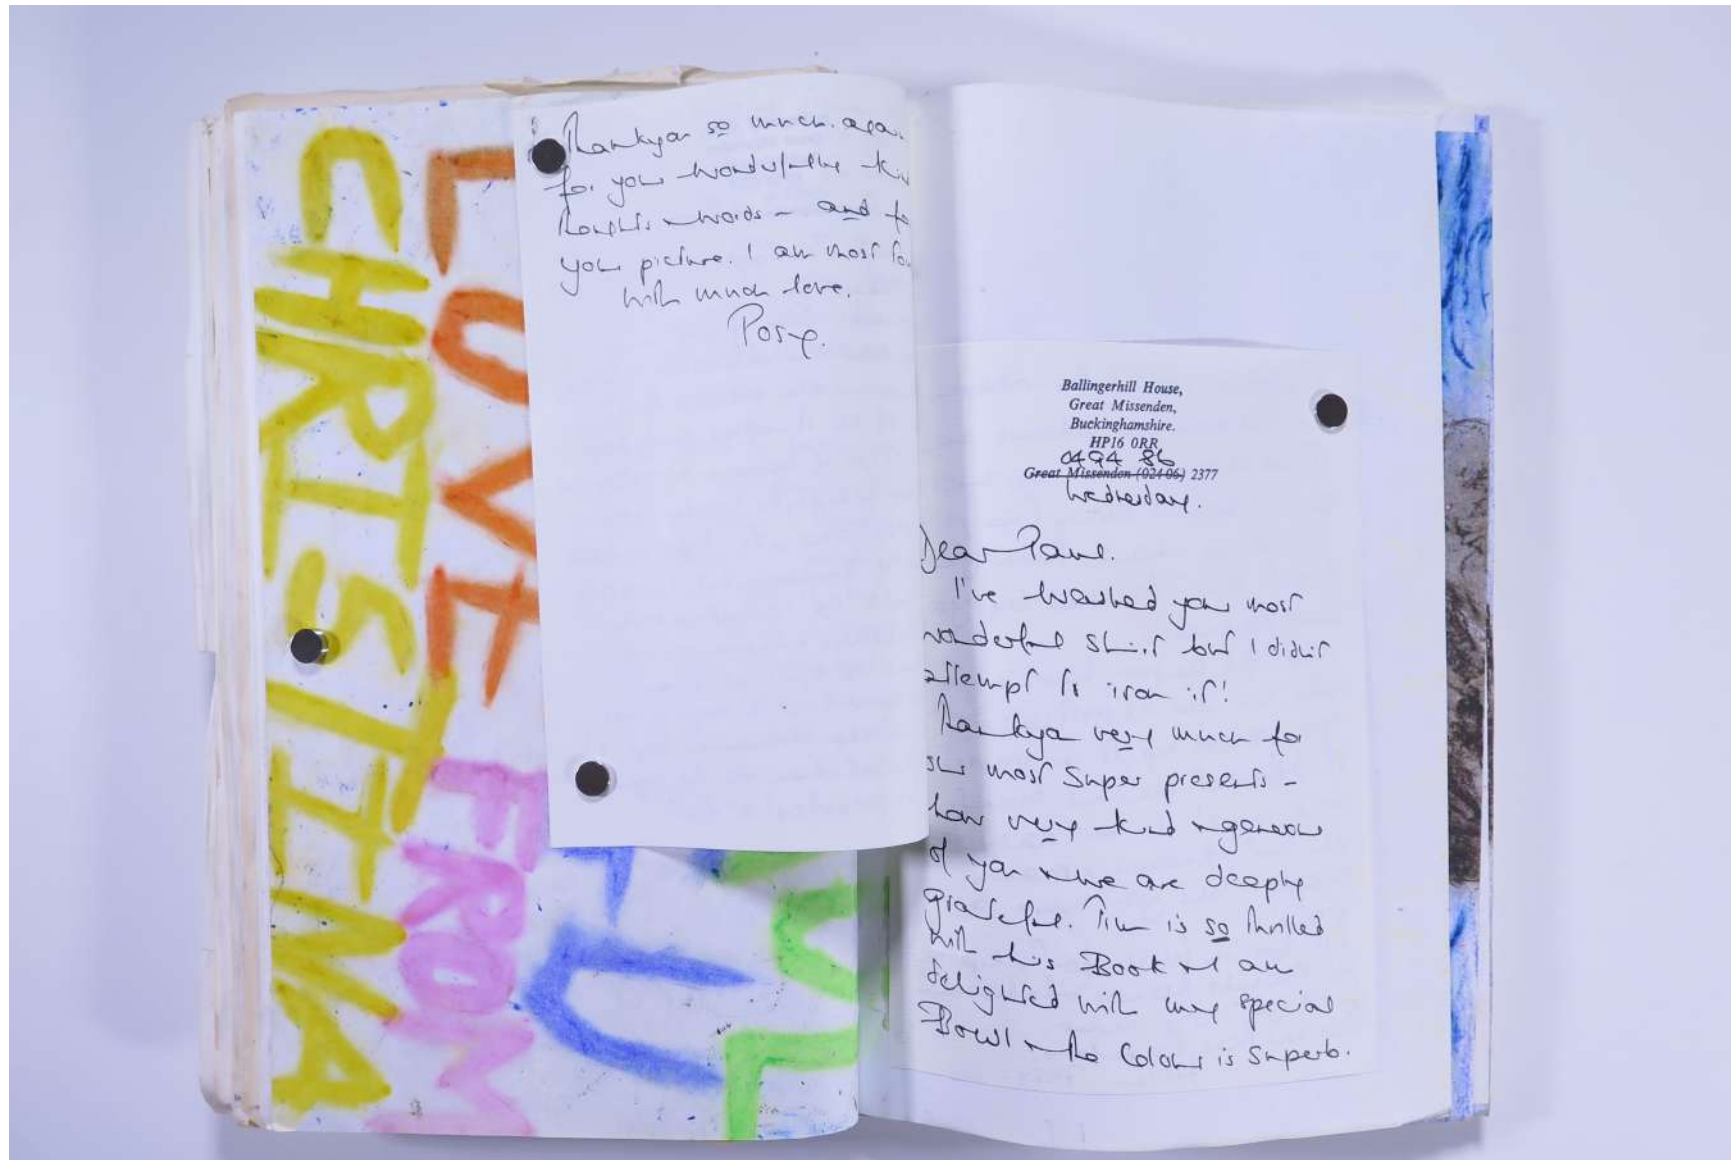 CHRISTINA
LOVE
FROM
Thankyou so much. agai
for your wonderfully kin
thoughts & words - and fo
your picture. I am most
with much love.
Posy.
Ballingerhill House,
Great Missenden,
Buckinghamshire.
HP16 0RR
0494 86
Great Missenden (024 06) 2377
Wednesday.
Dear Paul.
I've washed your most
wonderful shirt but I didn't
attempt to iron it!
Thankyou very much for
our most super presents -
how very kind & generous
of you & we are deeply
grateful. Tim is so thrilled
with his Book & I am
delighted with my special
Bowl & the colour is superb.